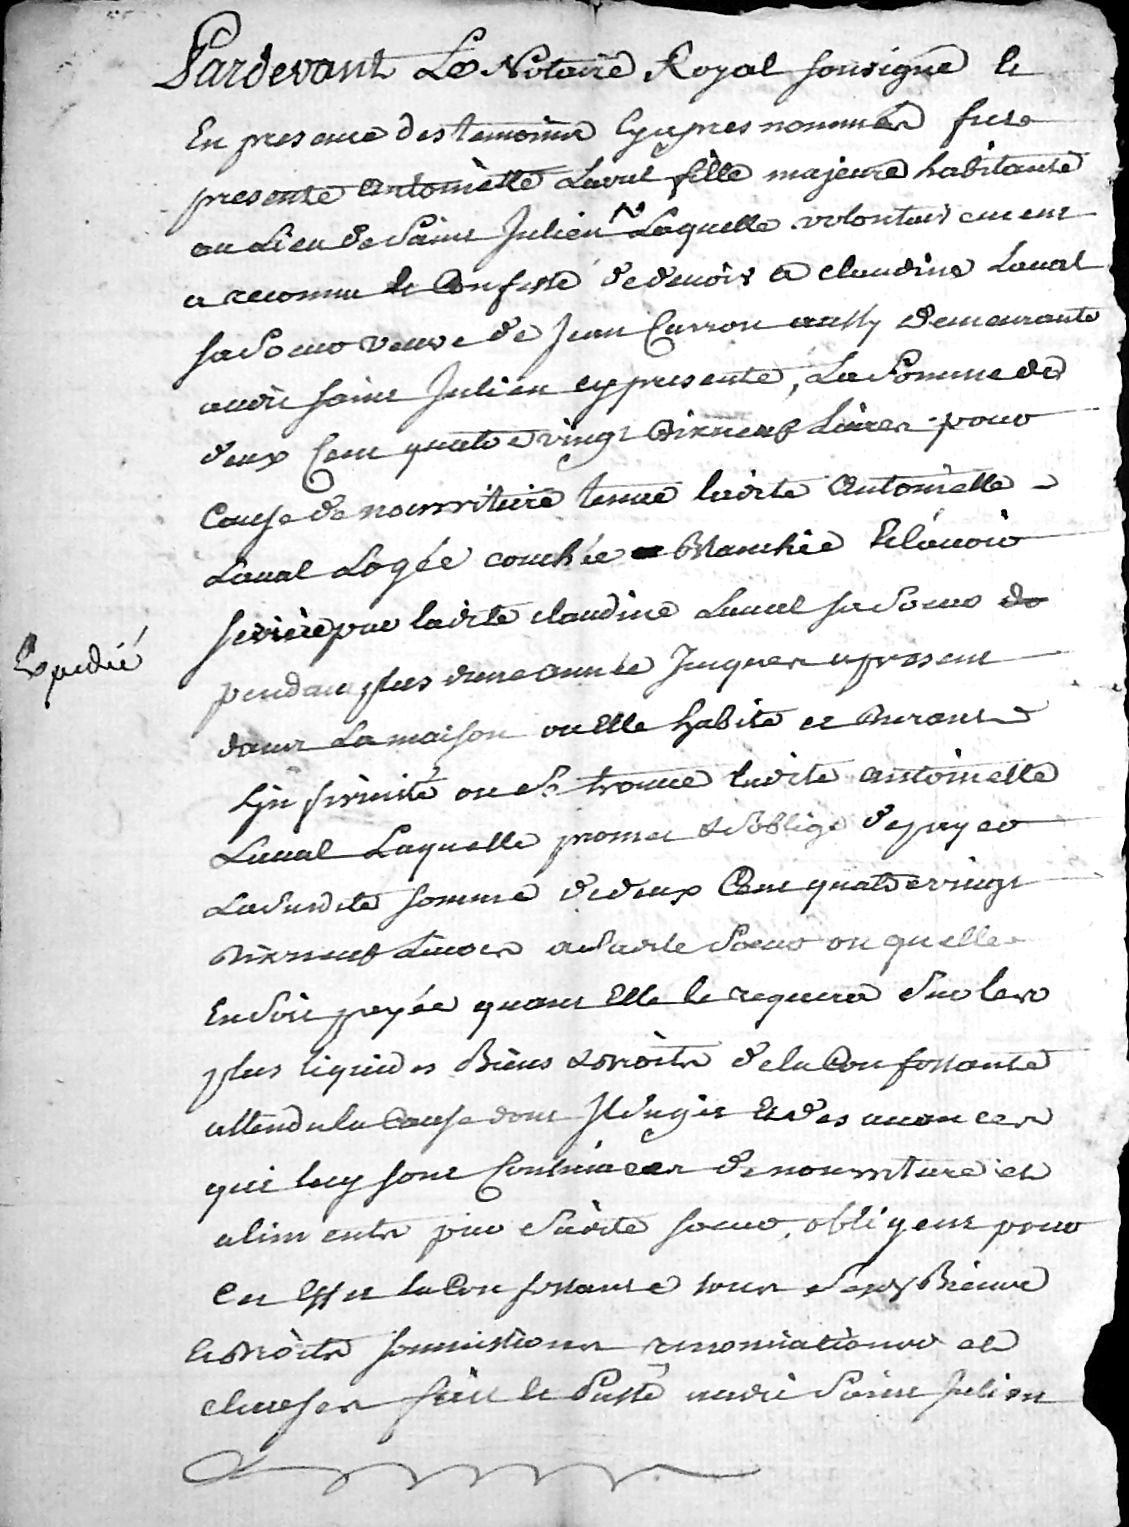 Pardevant Le Notaire Royal sousigné et
En presence des temoins Cy apres nommés fut
presente Antoinette Laval fille majeure habitante
au Lieu de Saint Julien Laquelle volontairement
a reconnu et Confessé de devoir a claudine Laval
sa Soeur veuve de Jean Carron aussy demeurante
audit saint Julien cy presente, La Somme de
deux Cent quatre vingt Dixneuf Livres pour
Cause de nourriture tenue ladite Antoinette
Laval Logée couchée Blanchie Et l'avoir
servie par ladite claudine Laval sa Soeur
Expedié
pendant plus d'une année Jusques a present
dans La maison ou Elle habite et Durant
L'jnfirmité ou est trouve ladite antoinette
Laval Laquelle promet & s'oblige de payer
La Susdite somme de deux Cent quatre vingt
Dixneuf Livres a Sadite Soeur ou quelle
En Soit payée quant Elle le requera Sur les
plus liquides Biens & Droits de la Confessante
attendu la Cause dont Il S'agit Et des avances
qui luy sont Continuees de nourriture et
aliments par Sadite soeur, obligent pour
Cet Effet la Confessante tous Ses Biens
et Droits soumissions renonciations et
clauses fait et Passé audit Saint Julien